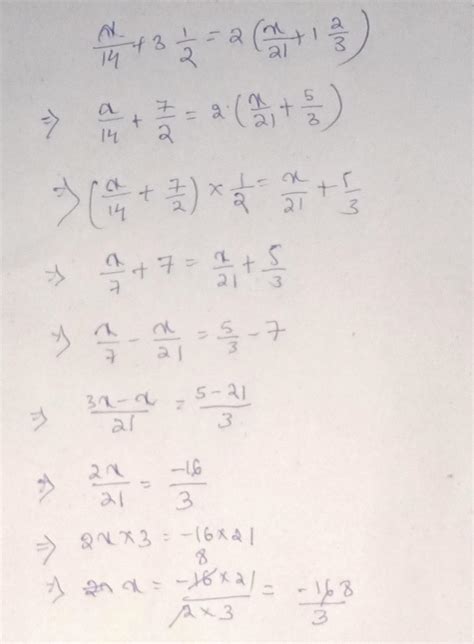 x/14 + 3 1/2 = 2 (x/21 + 1 2/3)
⇒ x/14 + 7/2 = 2·(x/21 + 5/3)
⇒ (x/14 + 7/2) × 1/2 = x/21 + 5/3
⇒ x/7 + 7 = x/21 + 5/3
⇒ x/7 - x/21 = 5/3 - 7
⇒ (3x - x)/21 = (5 - 21)/3
⇒ 2x/21 = -16/3
⇒ 2x × 3 = -16 × 21
8
⇒ x = (-16 × 21)/(2 × 3) = -168/3